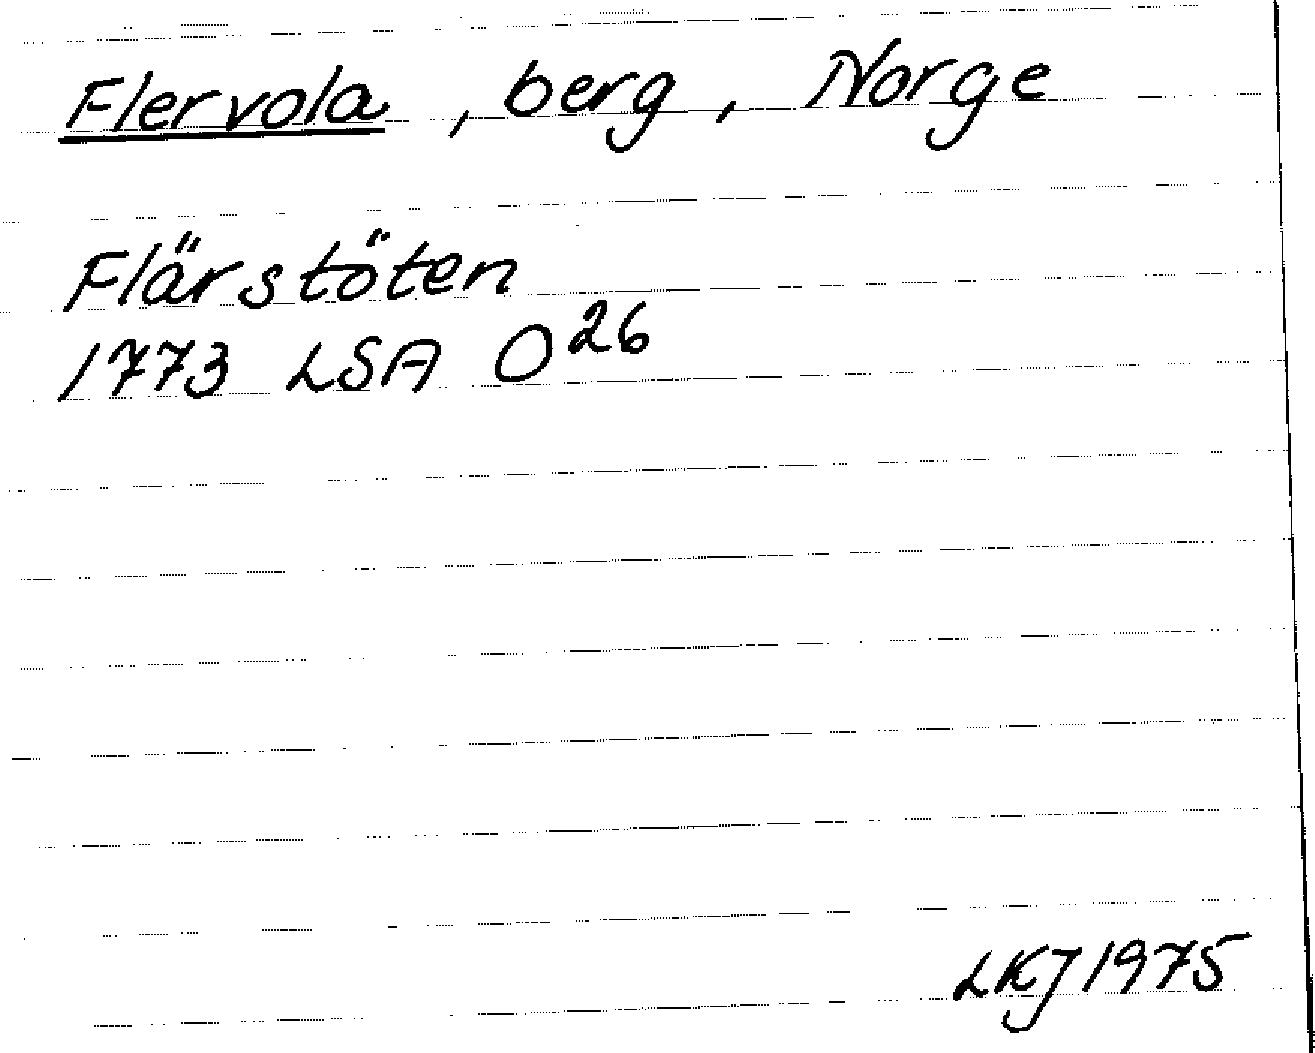 Flervola, berg, Norge
Flärstöten
1773 LSA O26
LKJ 1975